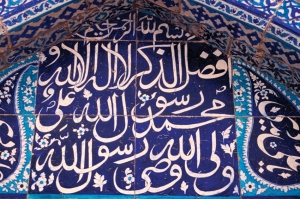 بسم الله الرحمن الرحیم
افضل الذکر لا اله الا الله
محمد رسول الله علی
ولی الله وصی رسول الله